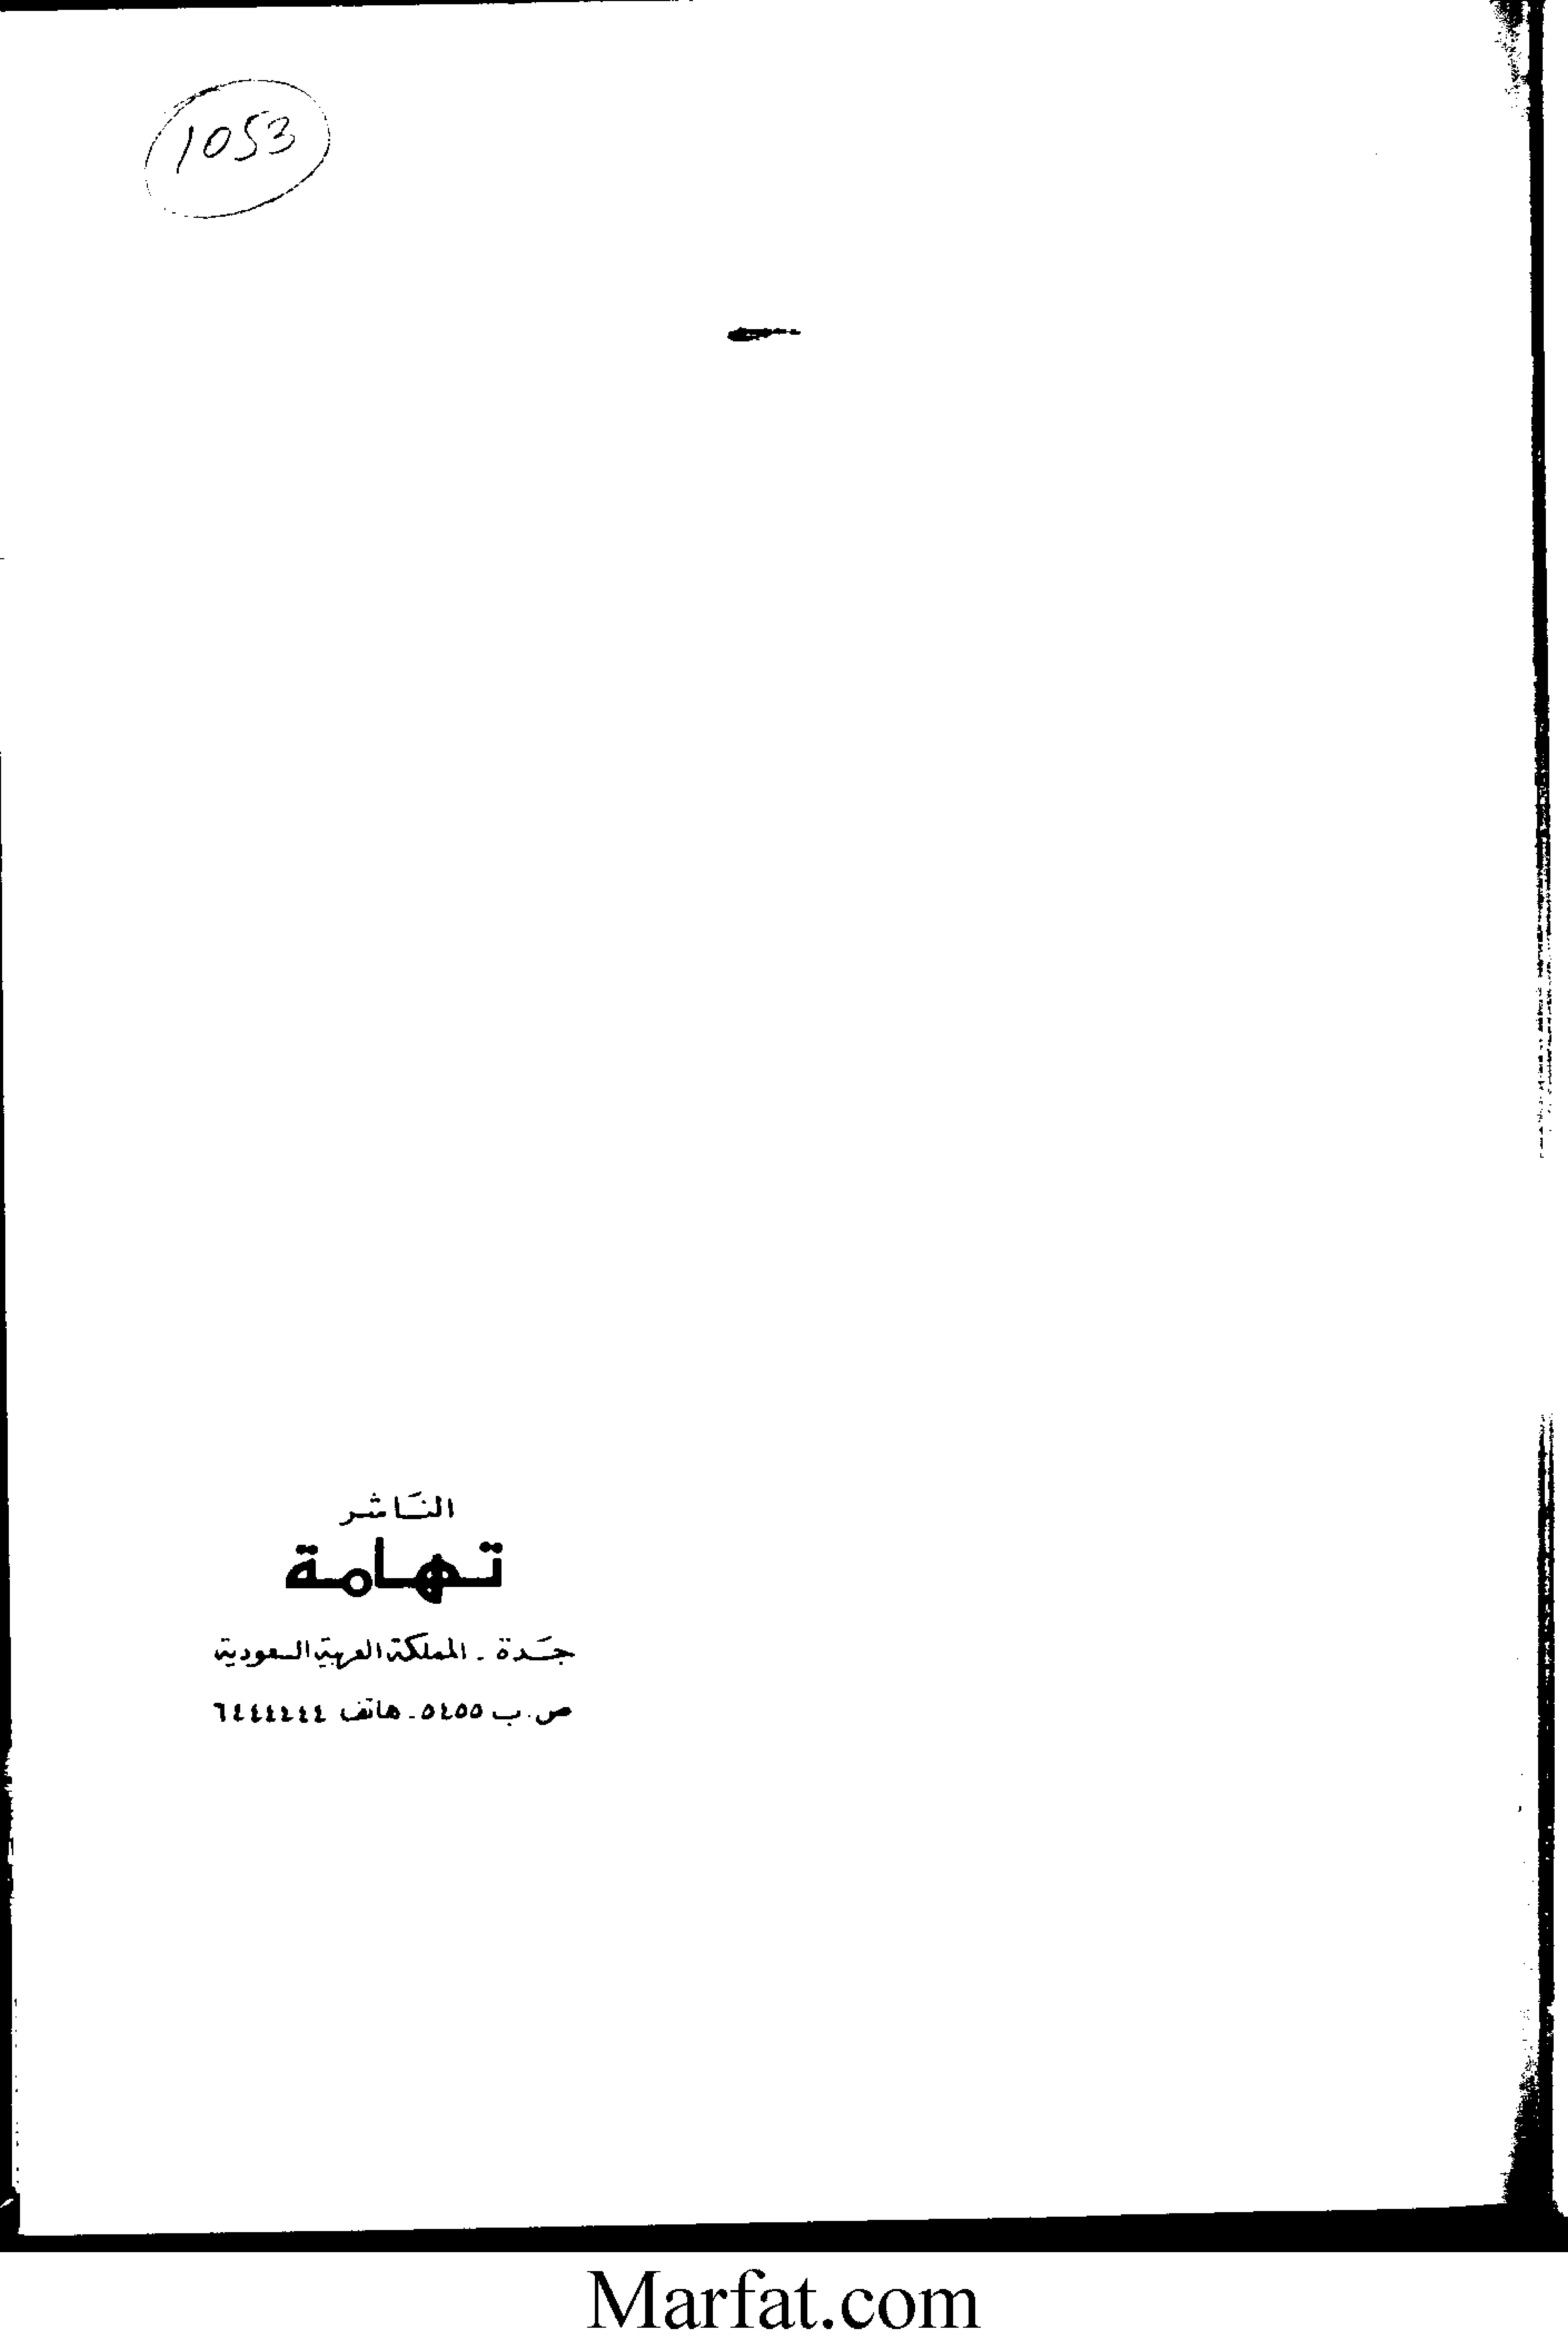 1053
النَاشر
تهامة
جَدة - المملكة العربية السعودية
ص.ب ٥٤٥٥ - هاتف ٦٤٤٤٤٤٤
Marfat.com